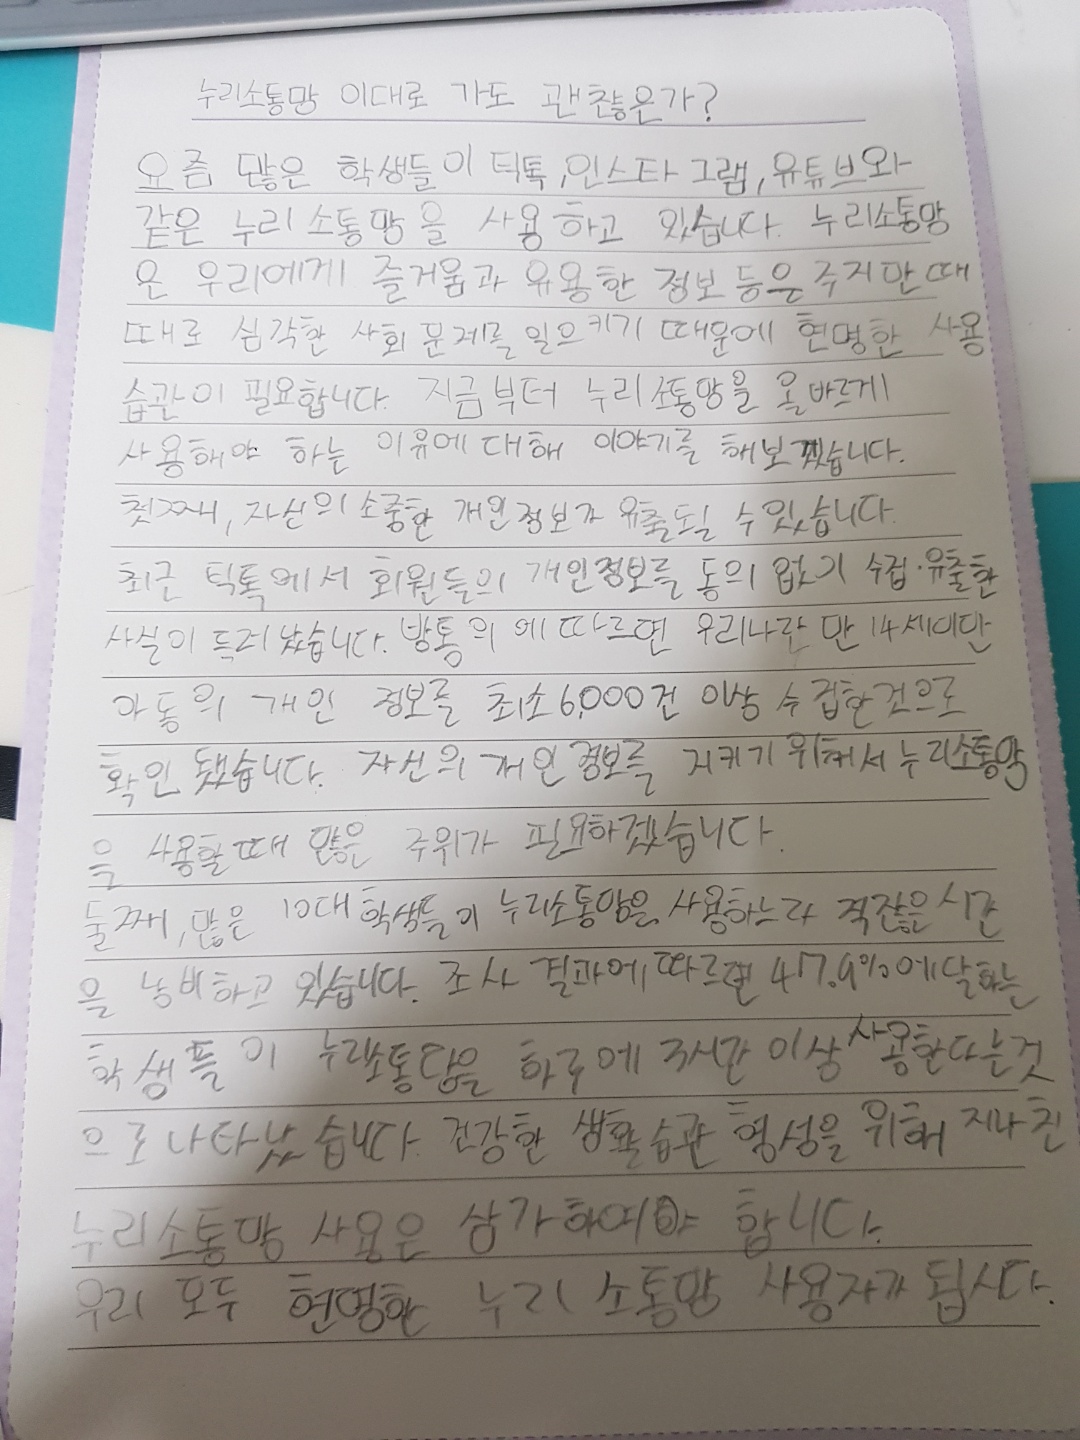 누리소통망 이대로 가도 괜찮은가?
요즘 많은 학생들이 틱톡, 인스타그램, 유튜브와
같은 누리소통망을 사용하고 있습니다. 누리소통망
은 우리에게 즐거움과 유용한 정보 등은 주지만 때
때로 심각한 사회 문제를 일으키기 때문에 현명한 사용
습관이 필요합니다. 지금부터 누리소통망을 올바르게
사용해야 하는 이유에 대해 이야기를 해보겠습니다.
첫째, 자신의 소중한 개인정보가 유출될 수 있습니다.
최근 틱톡에서 회원들의 개인정보를 동의 없기 수집·유출한
사실이 드러났습니다. 방통위에 따르면 우리나라 만 14세미만
아동의 개인 정보를 최소 6,000건 이상 수집한것으로
확인됐습니다. 자신의 개인정보를 지키기 위해서 누리소통망
을 사용할때 많은 주위가 필요하겠습니다.
둘째, 많은 10대 학생들이 누리소통망을 사용하느라 적잖은 시간
을 낭비하고 있습니다. 조사 결과에 따르면 47.9%에 달하는
학생들이 누리소통망을 하루에 3시간 이상 사용한다는것
으로 나타났습니다. 건강한 생활습관 형성을 위해 지나친
누리소통망 사용은 삼가하여야 합니다.
우리 모두 현명한 누리소통망 사용자가 됩시다.